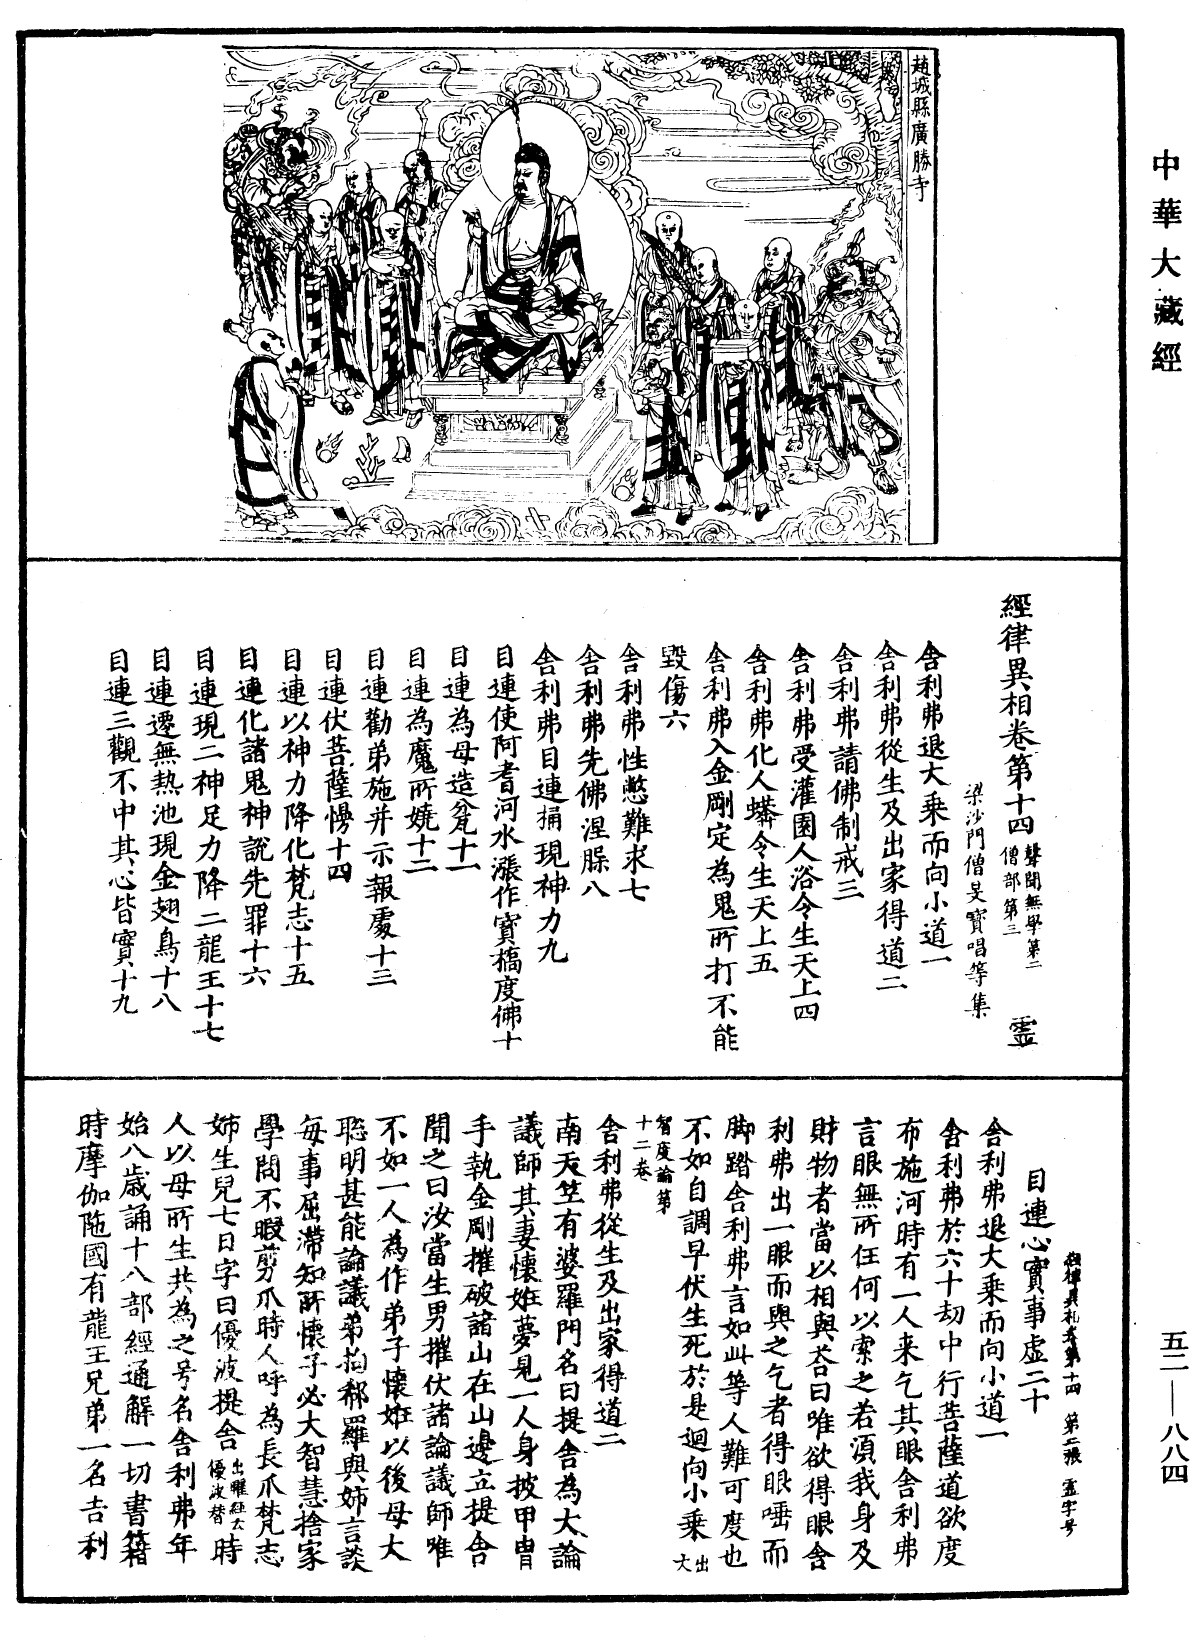 中華大藏經
趙城縣廣勝寺
經律異相卷第十四 聲聞無學第二僧部第三 靈
梁沙門僧旻寶唱等集
舍利弗退大乘而向小道一
舍利弗從生及出家得道二
舍利弗請佛制戒三
舍利弗受灌園人浴令生天上四
舍利弗化人蟒令生天上五
舍利弗入金剛定為鬼所打不能
毀傷六
舍利弗性憋難求七
舍利弗先佛涅槃八
舍利弗目連捔現神力九
目連使阿耆河水漲作寶橋度佛十
目連為母造盆十一
目連為魔所嬈十二
目連勸弟施并示報處十三
目連伏菩薩慢十四
目連以神力降化梵志十五
目連化諸鬼神說先罪十六
目連現二神足力降二龍王十七
目連遷無熱池現金翅鳥十八
目連三觀不中其心皆實十九
經律異相卷第十四 第二張 靈字号
目連心實事虛二十
舍利弗退大乘而向小道一
舍利弗於六十劫中行菩薩道欲度
布施河時有一人来乞其眼舍利弗
言眼無所任何以索之若須我身及
財物者當以相與荅曰唯欲得眼舍
利弗出一眼而與之乞者得眼唾而
脚踏舍利弗言如此等人難可度也
不如自調早伏生死於是迴向小乘 出大
智度論第十二卷
舍利弗從生及出家得道二
南天竺有婆羅門名曰提舍為大論
議師其妻懷妊夢見一人身披甲胄
手執金剛摧破諸山在山邊立提舍
聞之曰汝當生男摧伏諸論議師唯
不如一人為作弟子懷妊以後母大
聡明甚能論議弟拘郗羅與姊言談
每事屈滯知所懷子必大智慧捨家
學問不暇剪爪時人呼為長爪梵志
姊生兒七日字曰優波提舍 出曜經云優波替 時
人以母所生共為之号名舍利弗年
始八歳誦十八部經通解一切書籍
時摩伽陁國有龍王兄弟一名吉利
五二—八八四